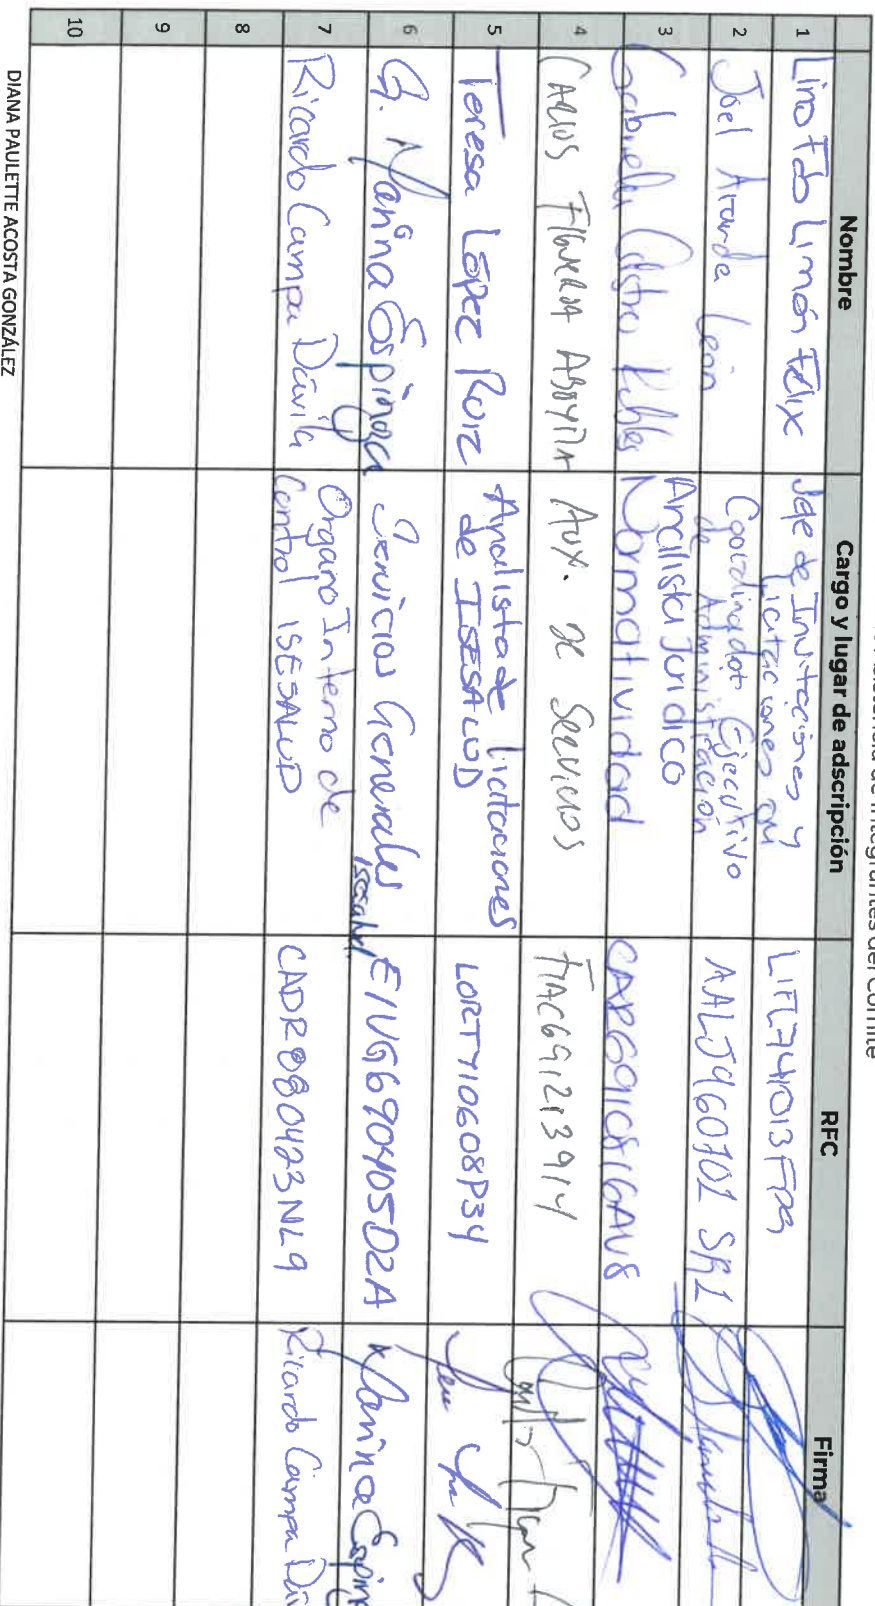 Nombre Cargo y lugar de adscripción RFC Firma
1 Lino Fdo Limón Félix Jefe de Invitaciones y Licitaciones LIFL741013
2 Joel Aranda León Coordinador Ejecutivo de Administración AALJ960701 SR1
3 Gabriela Castro Robles Analista Jurídico Normatividad
4 Carlos Figueroa Aboyta Aux. de Servicios FIAC691213914
5 Teresa López Ruiz Analista de licitaciones de ISESALUD LORT710608P34
6 G. Marina Espinoza Servicios Generales Isesalud EIVG690405D2A Marina Espino
7 Ricardo Campa Dávila Organo Interno de Control ISESALUD CADR880423NL9 Ricardo Campa Dáv
8
9
10
DIANA PAULETTE ACOSTA GONZÁLEZ